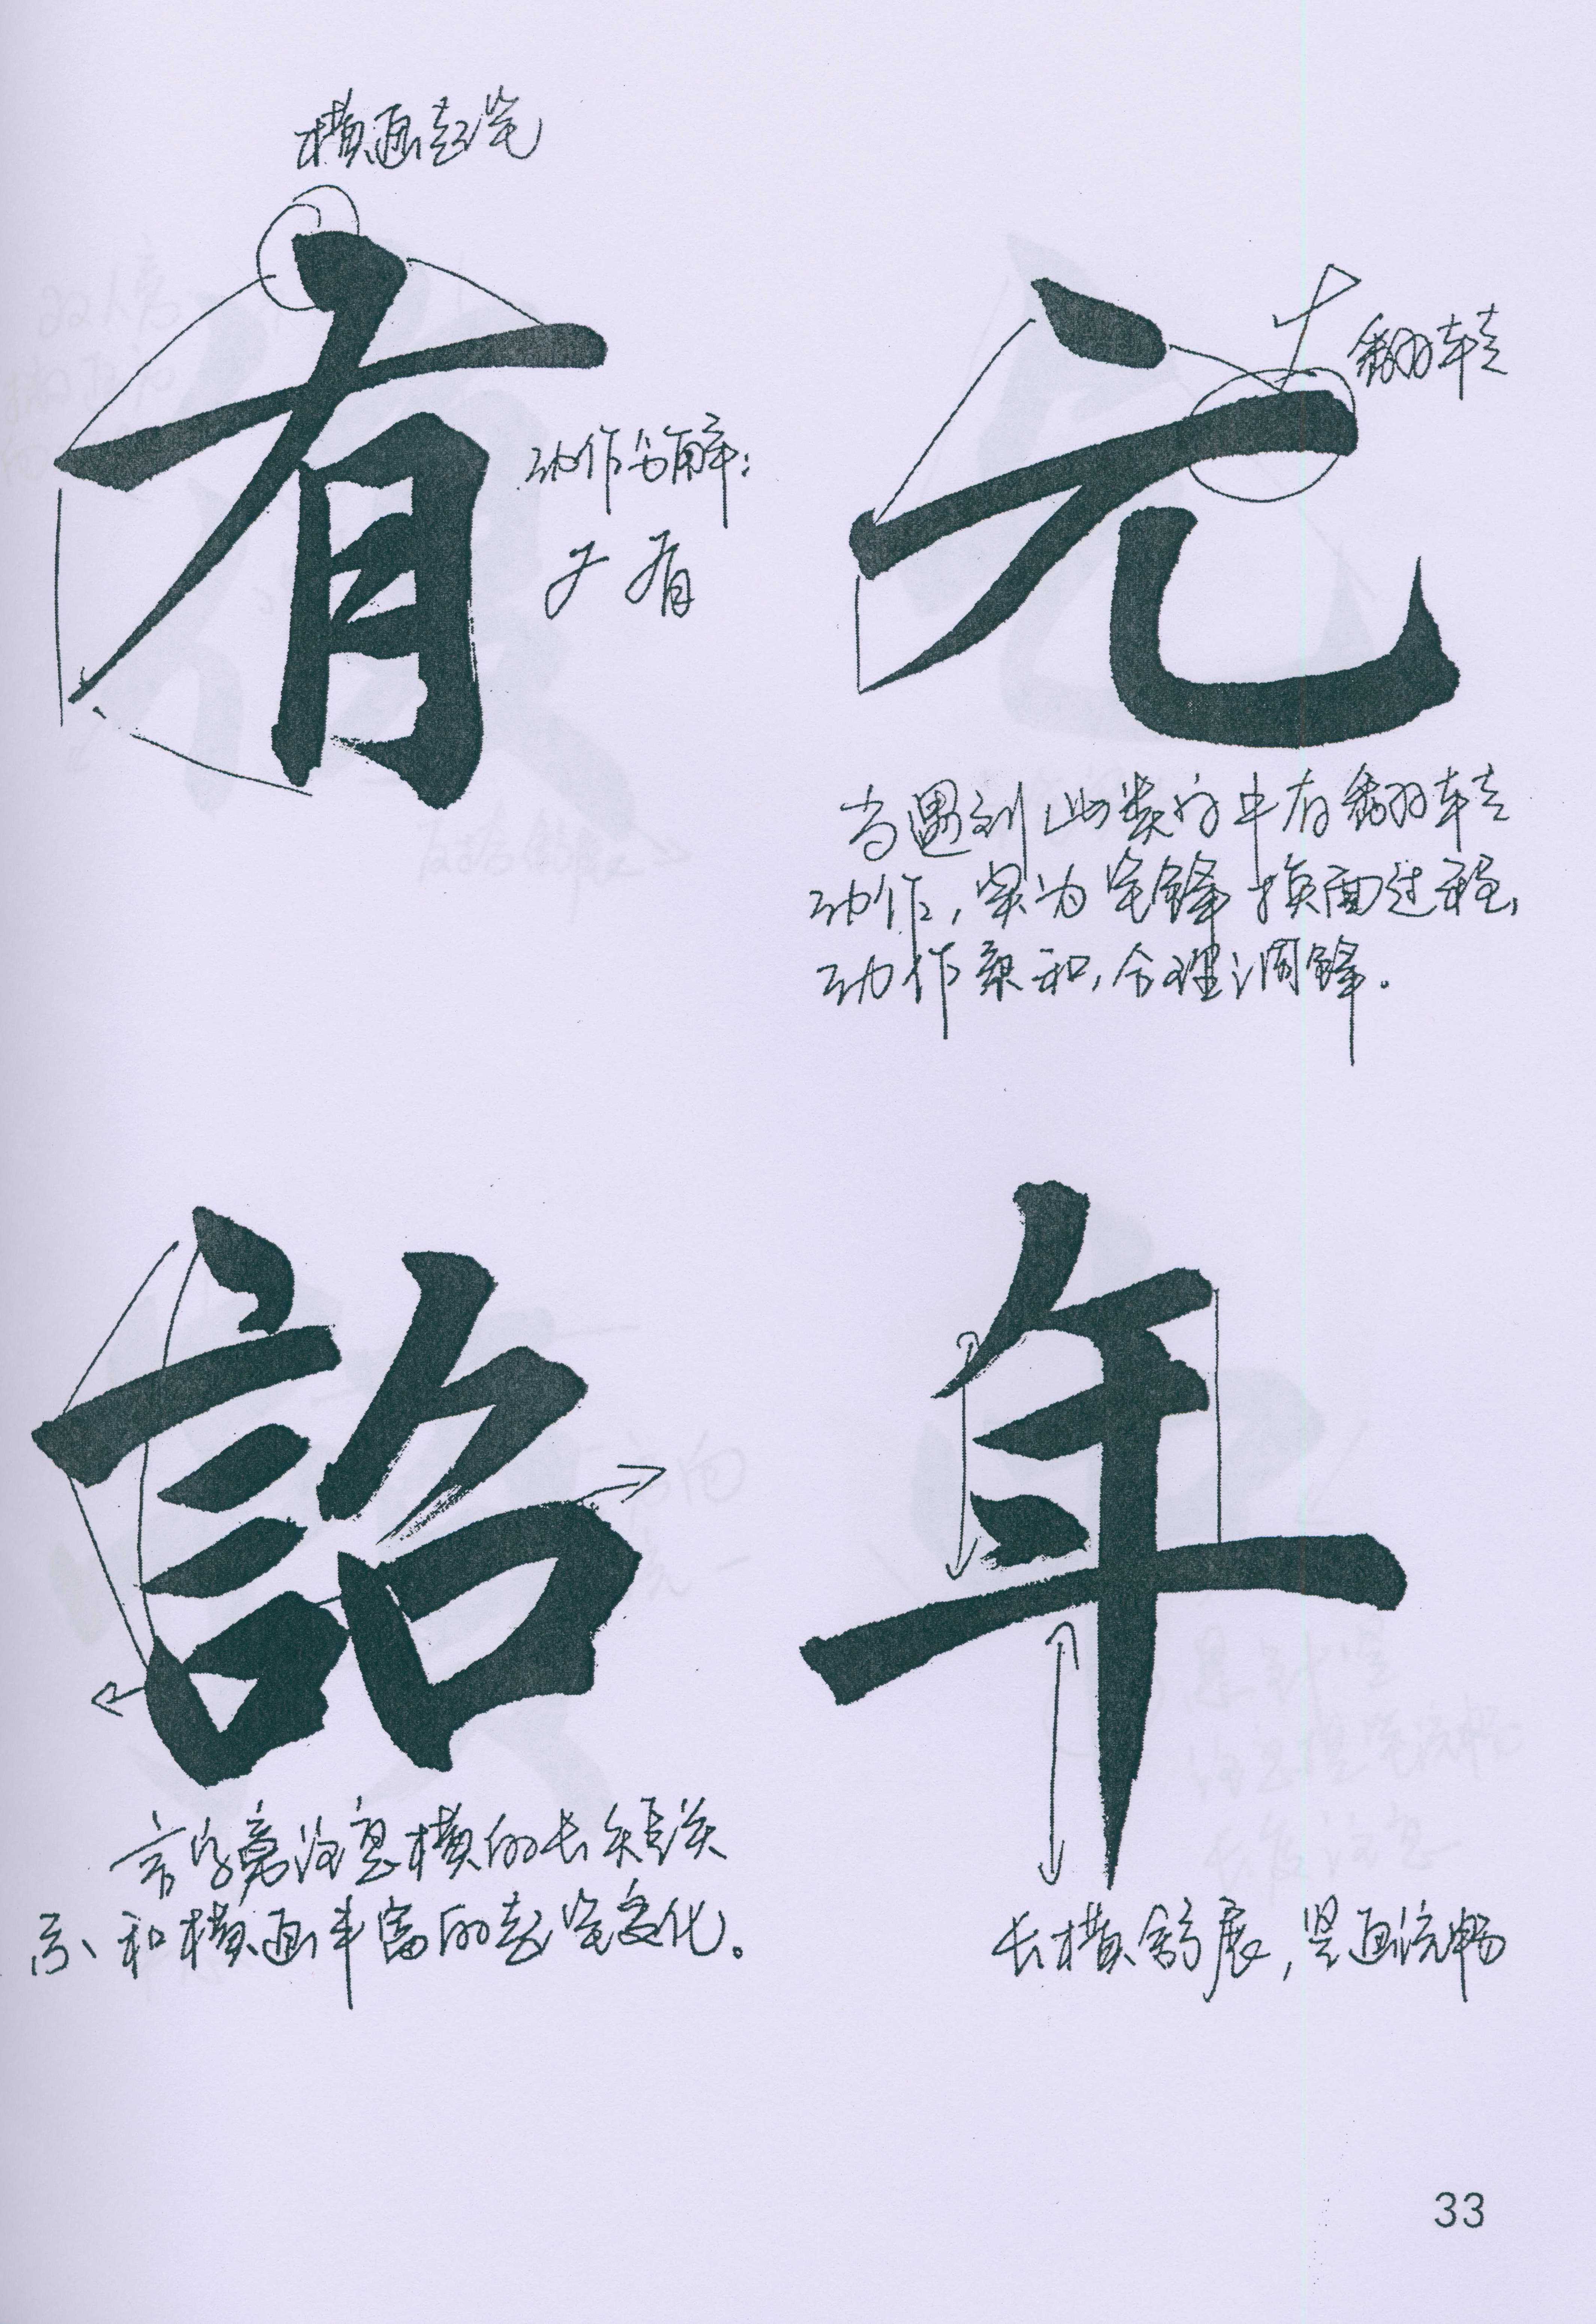 横画起笔
有
动作分解:
ナ 有
元
翻转
当遇到此类字中有翻转
动作,实为笔锋换面过程,
动作柔和,合理调锋.
詔
言字旁注意横的长短关
系、和横画丰富的起笔变化。
年
长横舒展,竖画流畅
33